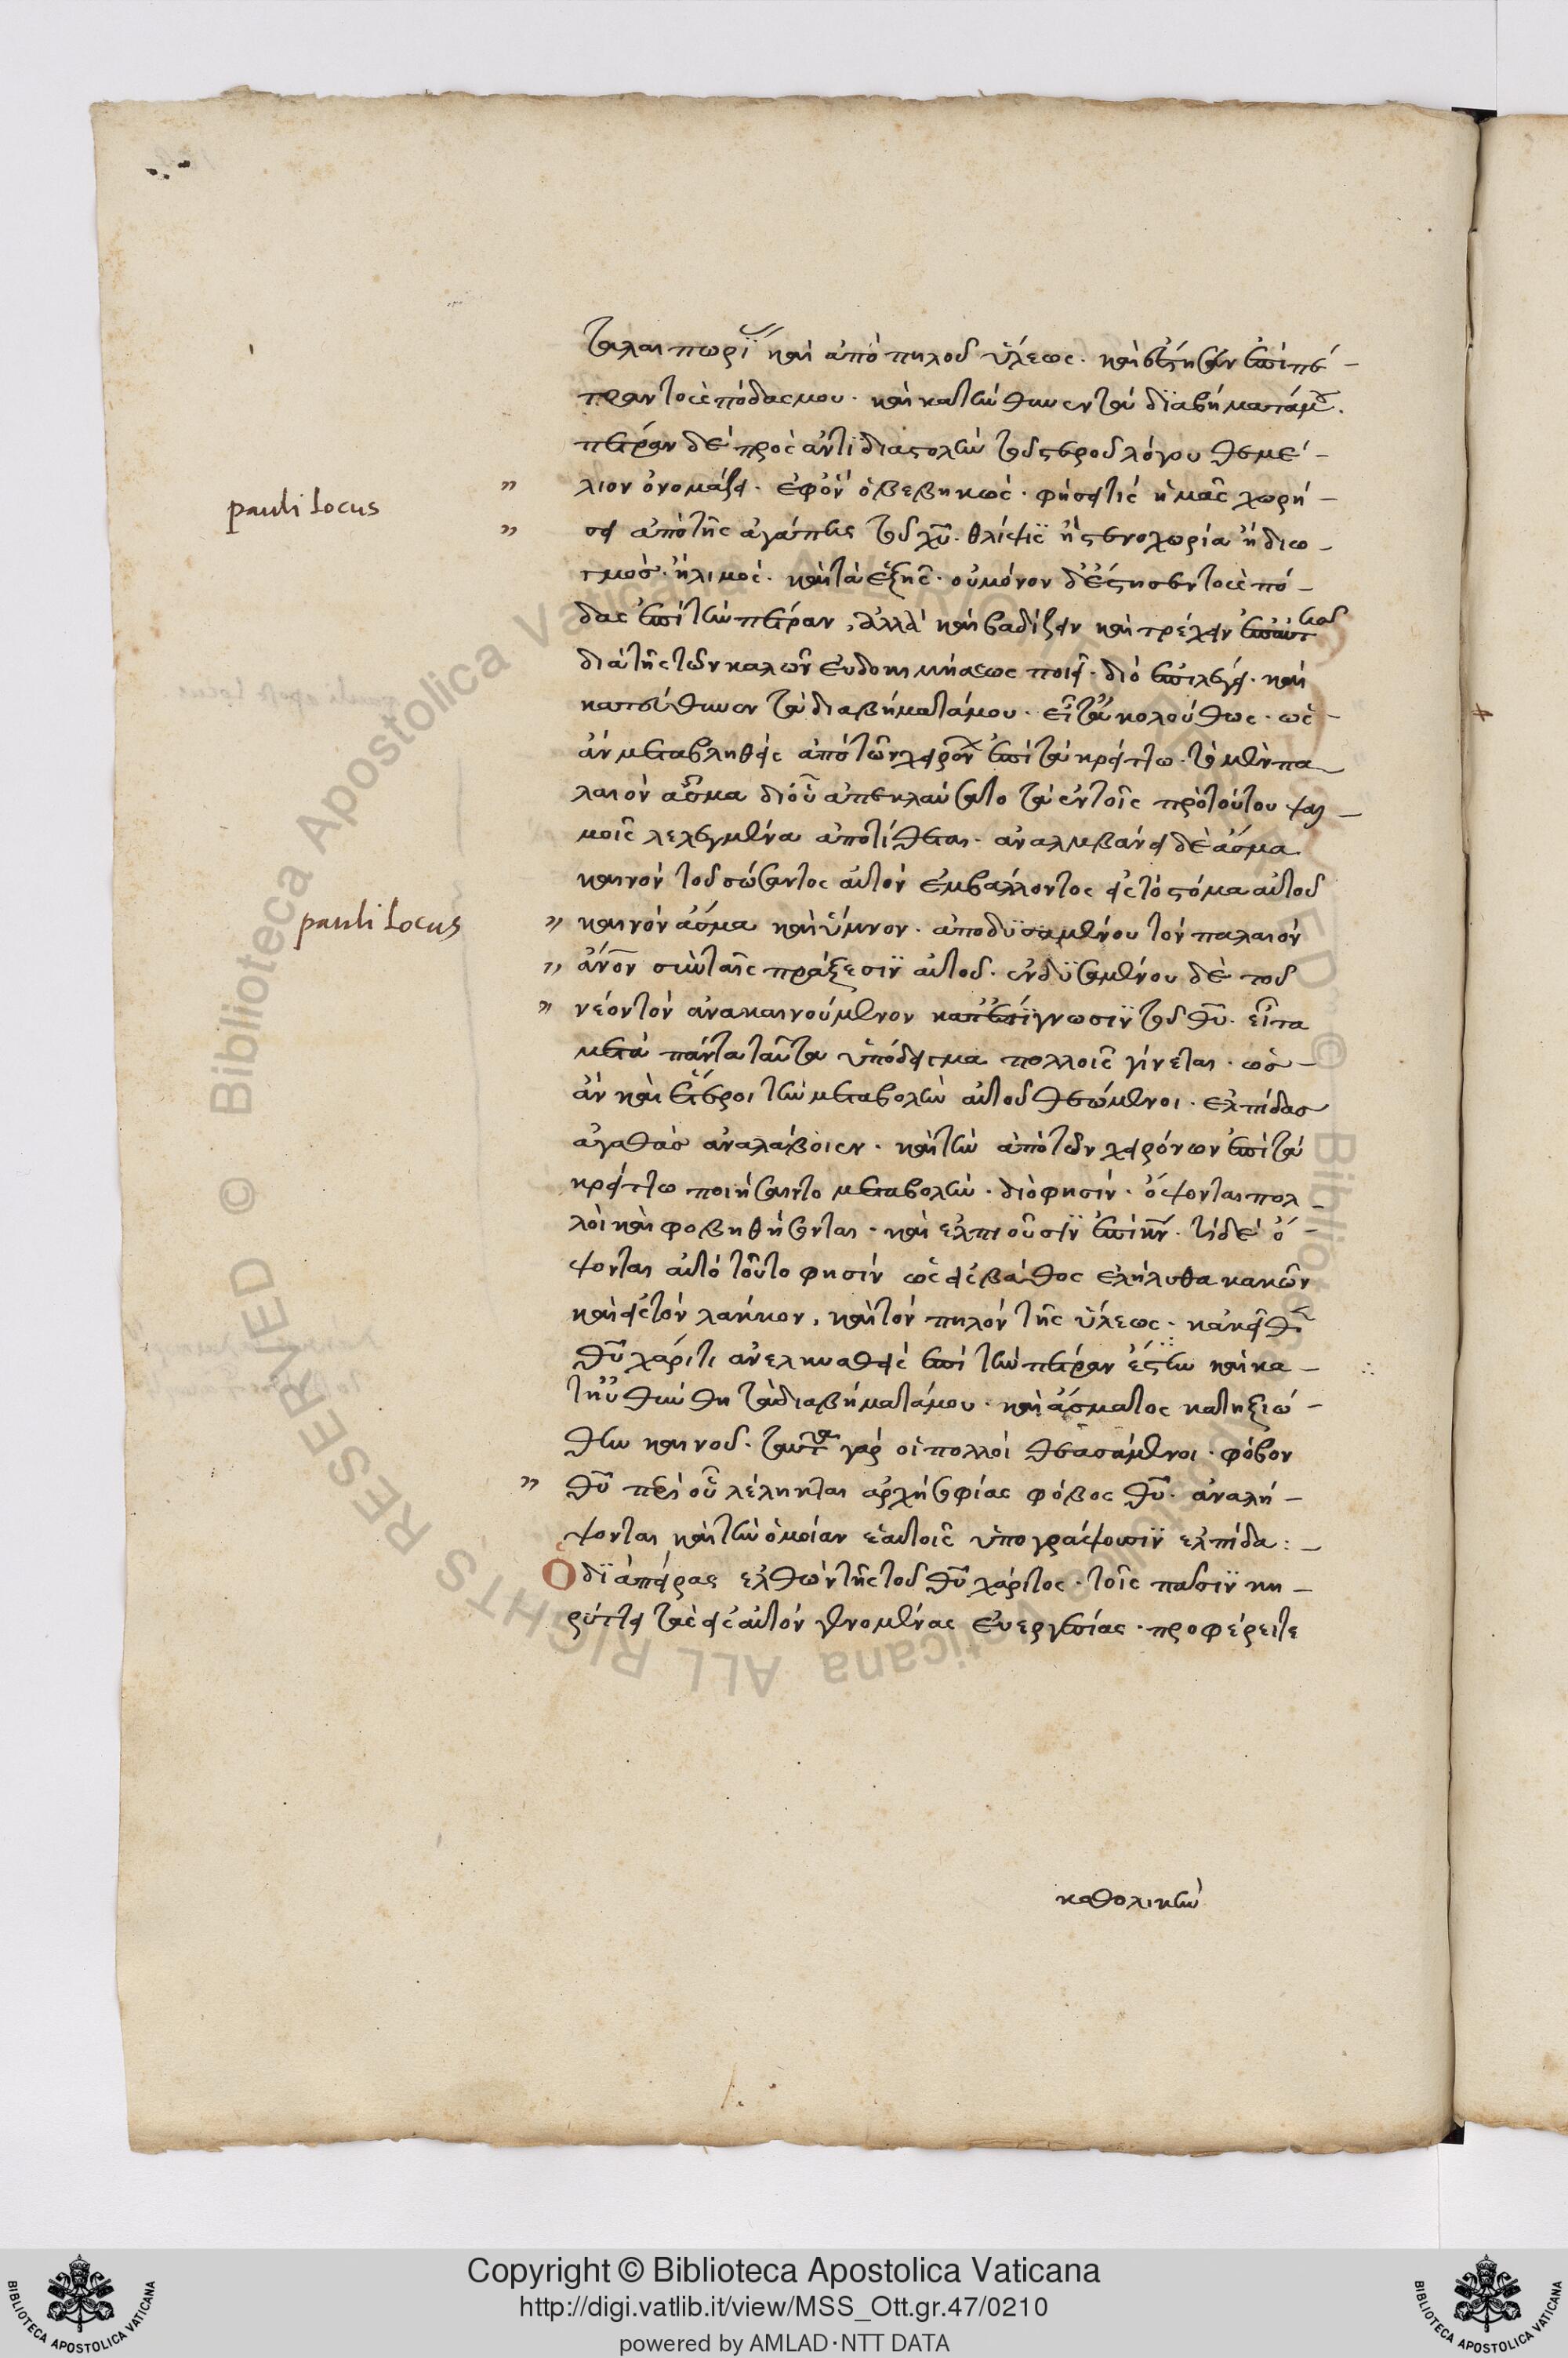 ταλαιπωρί(ας) καὶ ἀπὸ πηλοῦ ὕλεως. καὶ ἔστησεν ἐπὶ πέ-
τραν τοὺς πόδας μου. καὶ κατεύθυνεν τὰ διαβήματά μου.
πέτραν δὲ πρὸς ἀντιδιαστολὴν τοῦ στεροῦ λόγου θεμέ-
pauli locus
λιον ὀνομάζει. ἐφ' ὃν ὁ βεβηκώς. φήσει τίς ἡμᾶς χωρή-
σει ἀπὸ τῆς ἀγάπης τοῦ χυ. θλίψις ἢ στενοχωρία ἢ διω-
γμὸς. ἢ λιμός. καὶ τὰ ἑξῆς. οὐ μόνον δὲ ἔστησεν τοὺς πό-
δας ἐπὶ τὴν πέτραν, ἀλλὰ καὶ βαδίζειν καὶ τρέχειν ἐπ' αὐτ
διὰ τῆς τῶν καλῶν εὐδοκιμήσεως ποιεῖ. διὸ ἐπιλέγει. καὶ
κατεύθυνεν τὰ διαβήματά μου. εἶτ' ἀκολούθως. ὡς-
ἂν μεταβληθεὶς ἀπὸ τῶν χειρόν(ων) ἐπὶ τὰ κρείττω. τὸ μὲν πα
λαιὸν ᾆσμα δι' οὗ ἀπεκλαύσατο τὰ ἐν τοῖς πρὸ τούτου ψαλ-
μοῖς λελεγμένα ἀποτίθεται. ἀναλαμβάνει δὲ ᾆσμα
καινὸν τοῦ σώσαντος αὐτὸν ἐμβαλόντος εἰς τὸ στόμα αὐτοῦ
pauli locus
καινὸν ᾆσμα καὶ ὕμνον. ἀποδυσαμένου τὸν παλαιὸν
ἄνον σὺν ταῖς πράξεσιν αὐτοῦ. ἐνδυσαμένου δὲ τοῦ
νέον τὸν ἀνακαινούμενον κατ' ἐπίγνωσιν τοῦ θυ. εἶτα
μετὰ πάντα ταῦτα ὑπόδειγμα πολλοῖς γίνεται. ὡς-
ἂν καὶ ἕτεροι τὴν μεταβολὴν αὐτοῦ θεώμενοι. ἐλπίδας
ἀγαθὰς ἀναλάβοιεν. καὶ τὴν ἀπὸ τῶν χειρόνων ἐπὶ τὰ
κρείττω ποιήσαιντο μεταβολήν. διό φησιν. ὄψονται πολ-
λοὶ καὶ φοβηθήσονται. καὶ ἐλπιοῦσιν ἐπὶ κν. τί δὲ ὄ-
ψονται αὐτὸ τοῦτο φησὶν ὡς εἰς βάθος ἐλήλυθα κακῶν
καὶ εἰς τὸν λάκκον, καὶ τὸν πηλὸν τῆς ὕλεως. κἀκεῖθ(εν)
θυ χάριτι ἀνελκυσθεὶς ἐπὶ τὴν πέτραν ἔστην καὶ κα-
τηυθύνθη τὰ διαβήματά μου. καὶ ᾄσματος κατηξιώ-
θην καινοῦ. ταῦτα γὰρ οἱ πολλοὶ θεασάμενοι. φόβον
θυ περὶ οὗ λέλεκται ἀρχὴ σοφίας φόβος θυ. ἀναλή-
ψονται καὶ τὴν ὁμοίαν ἑαυτοῖς ὑπογράψουσιν ἐλπίδα: -
Ὁ διὰ πείρας ἐλθὼν τῆς τοῦ θυ χάριτος. τοῖς πᾶσιν κη-
ρύττει τὰς εἰς αὐτὸν γενομένας εὐεργεσίας. προφέρεται
καθολικὴν
Copyright © Biblioteca Apostolica Vaticana
http://digi.vatlib.it/view/MSS_Ott.gr.47/0210
powered by AMLAD·NTT DATA